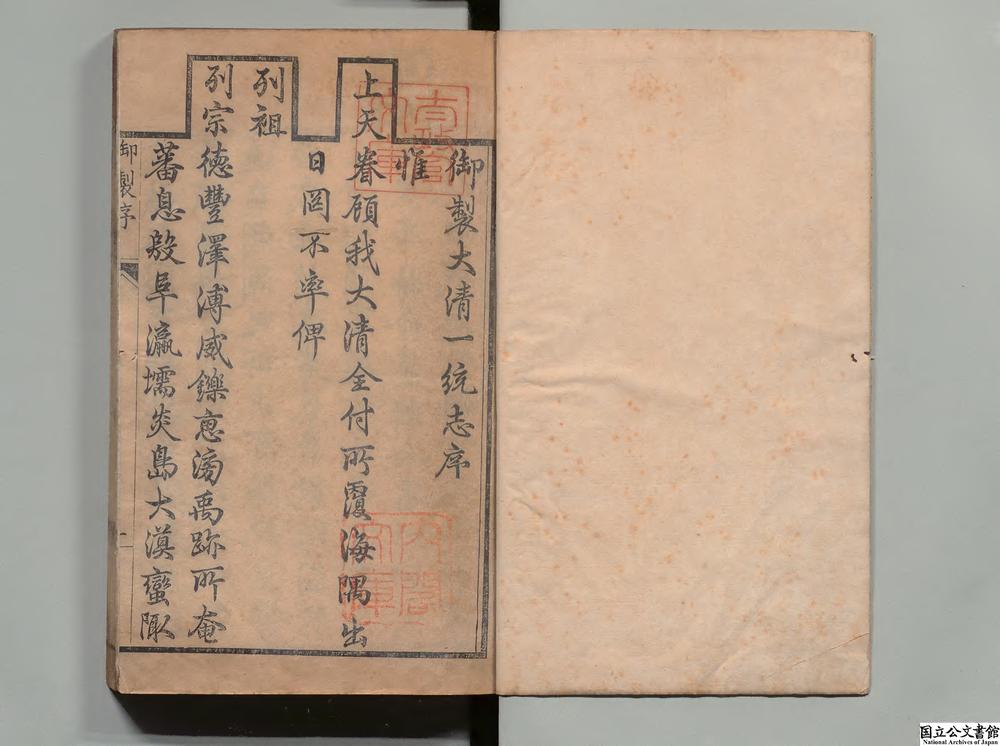 御製大清一統志序
惟
上天眷顧我大清全付所覆海隅出
日罔不率俾
列祖
列宗德豐澤溥威鑠惠滂禹跡所奄
蕃息殷阜瀛壖炎島大漠蠻陬
御製序
一
太政官文庫
内閣文庫
国立公文書館
National Archives of Japan